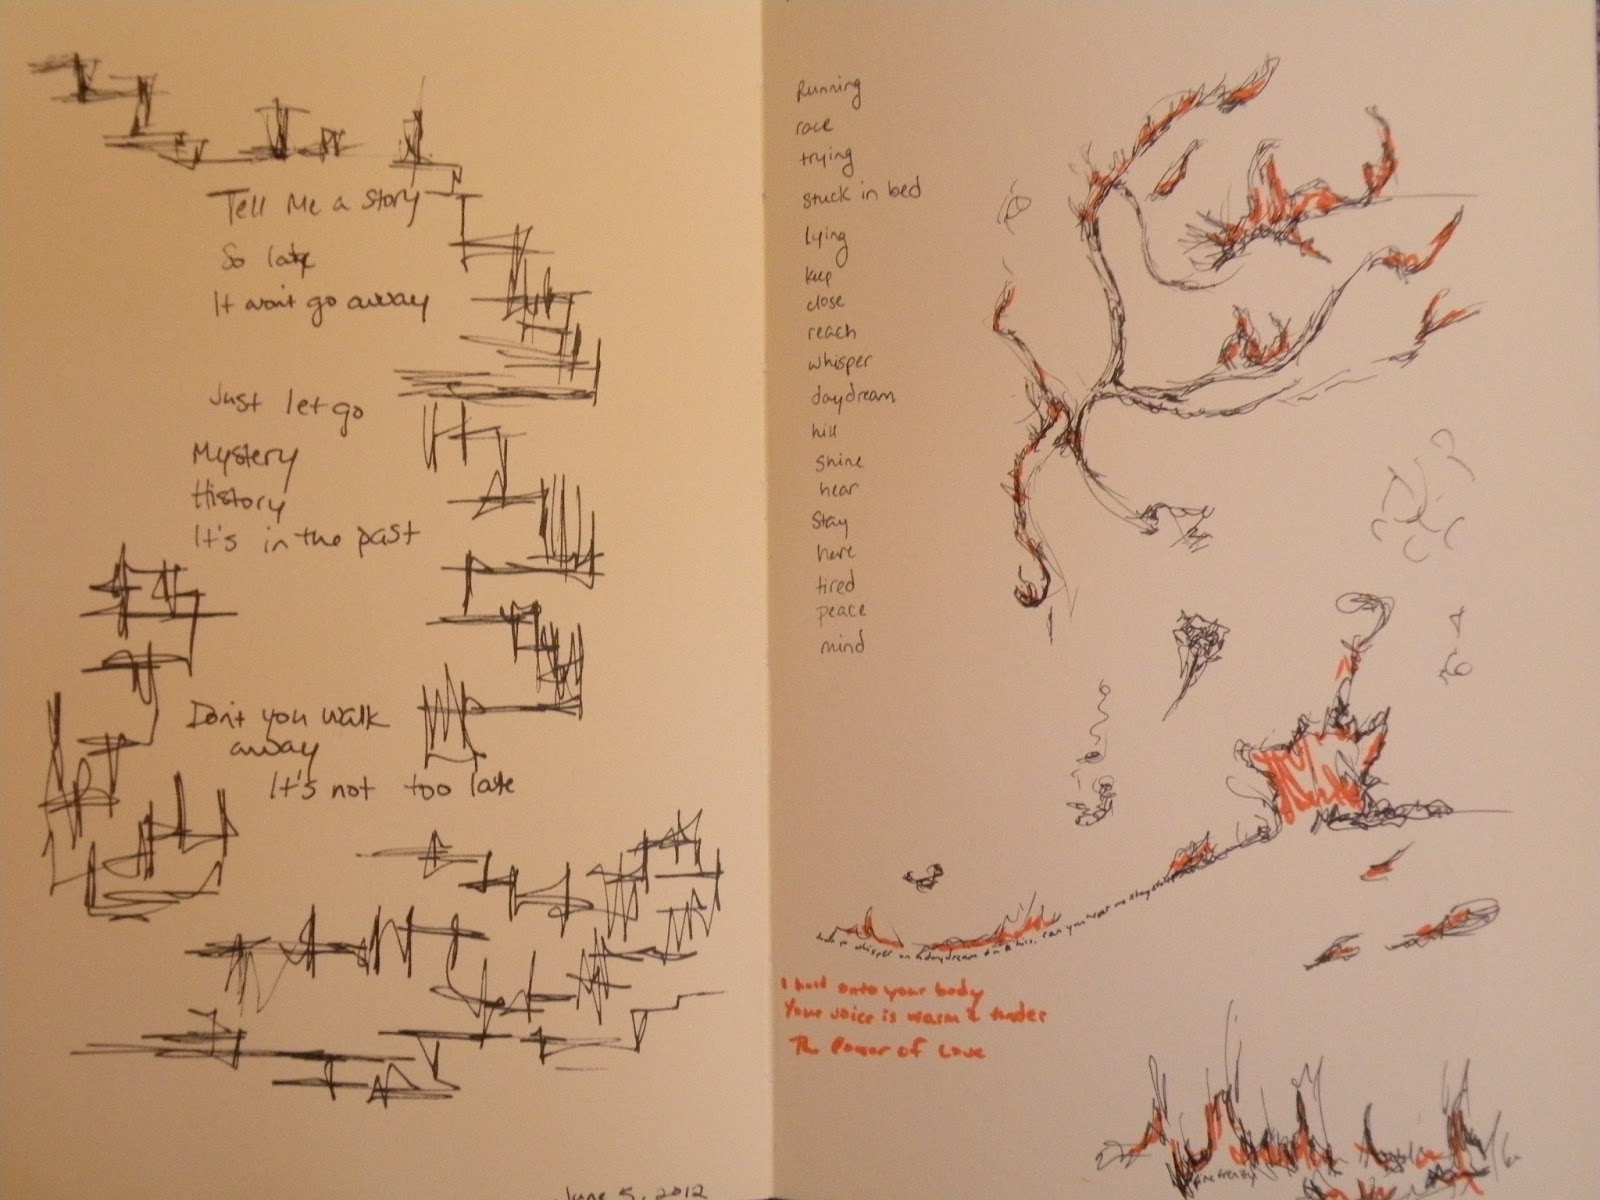 Tell Me a story
So late
It won't go away
Just let go
Mystery
History
It's in the past
Don't you walk
away
It's not too late
June 5, 2012
Running
race
trying
stuck in bed
lying
keep
close
reach
whisper
daydream
hill
shine
hear
stay
here
tired
peace
mind
whisper on a daydream on a hill can you hear me stay
I hold onto your body
Your voice is warm & tender
The Power of Love
fine frenzy